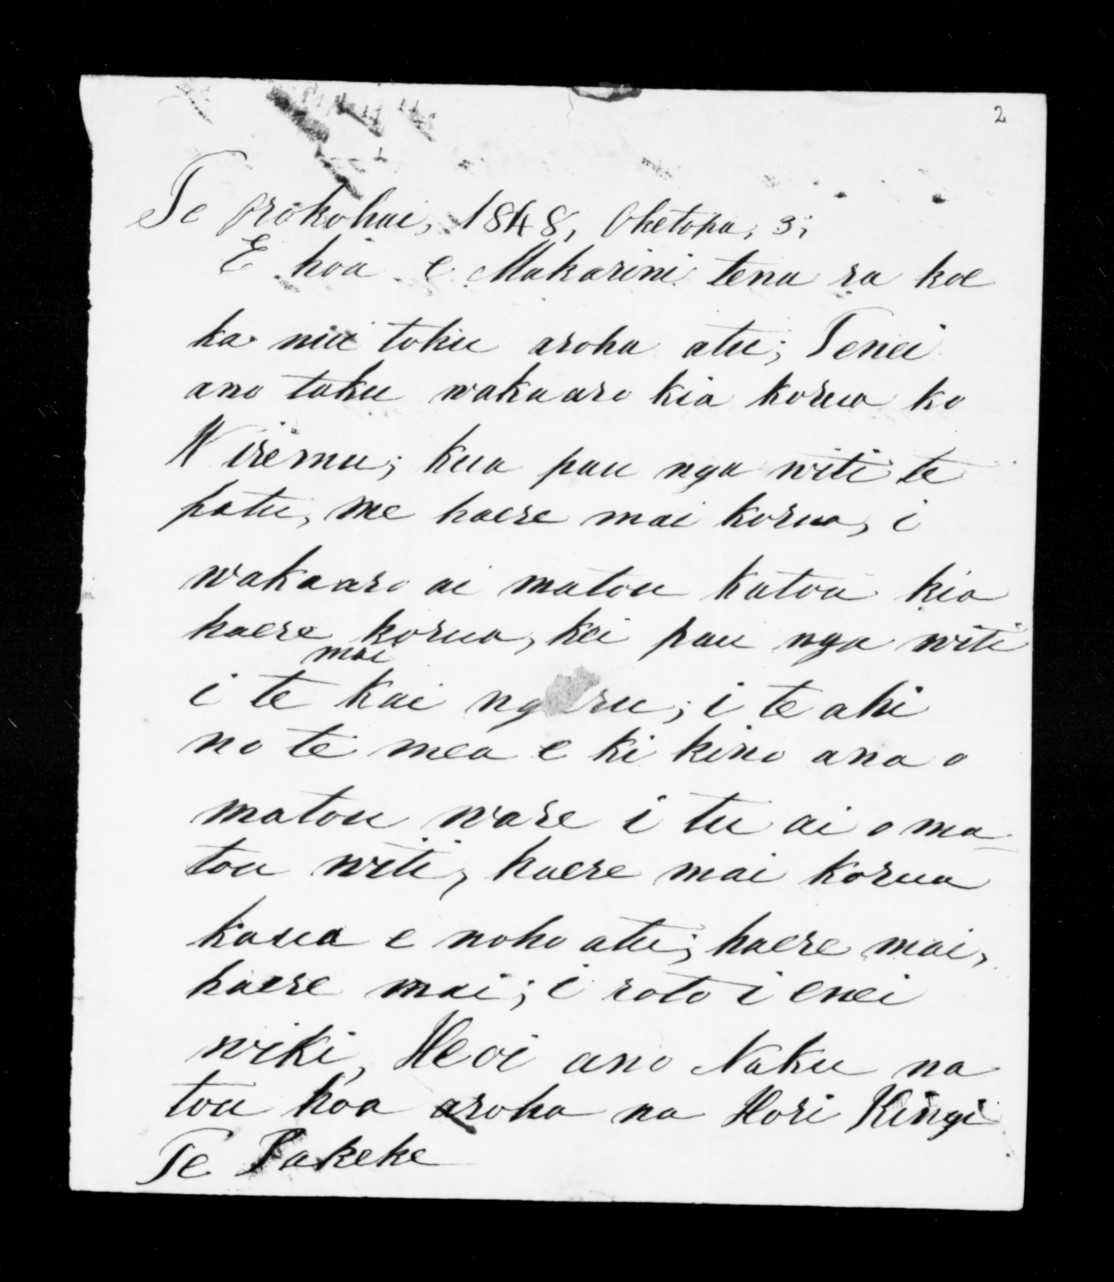 2
Te orokohai, 1848, Oketopa, 3;
E hoa e Makarini tena ra koe
ka nui toku aroha atu; Tenei
ano taku wakaaro kia korua ko
Wiremu; kua pau nga witi te
patu, me haere mai korua, i
wakaaro ai matou katoa kia
haere korua, kei pau nga witi
mai
i te kai ngaru; i te ahi
no te mea e ki kino ana o
matou ware i tu ai o ma-
tou witi, haere mai korua
kaua e noho atu; haere mai,
haere mai; i roto i enei
wiki, Heoi ano Naku na
tou hoa aroha na Hori Kingi
Te Pakeke